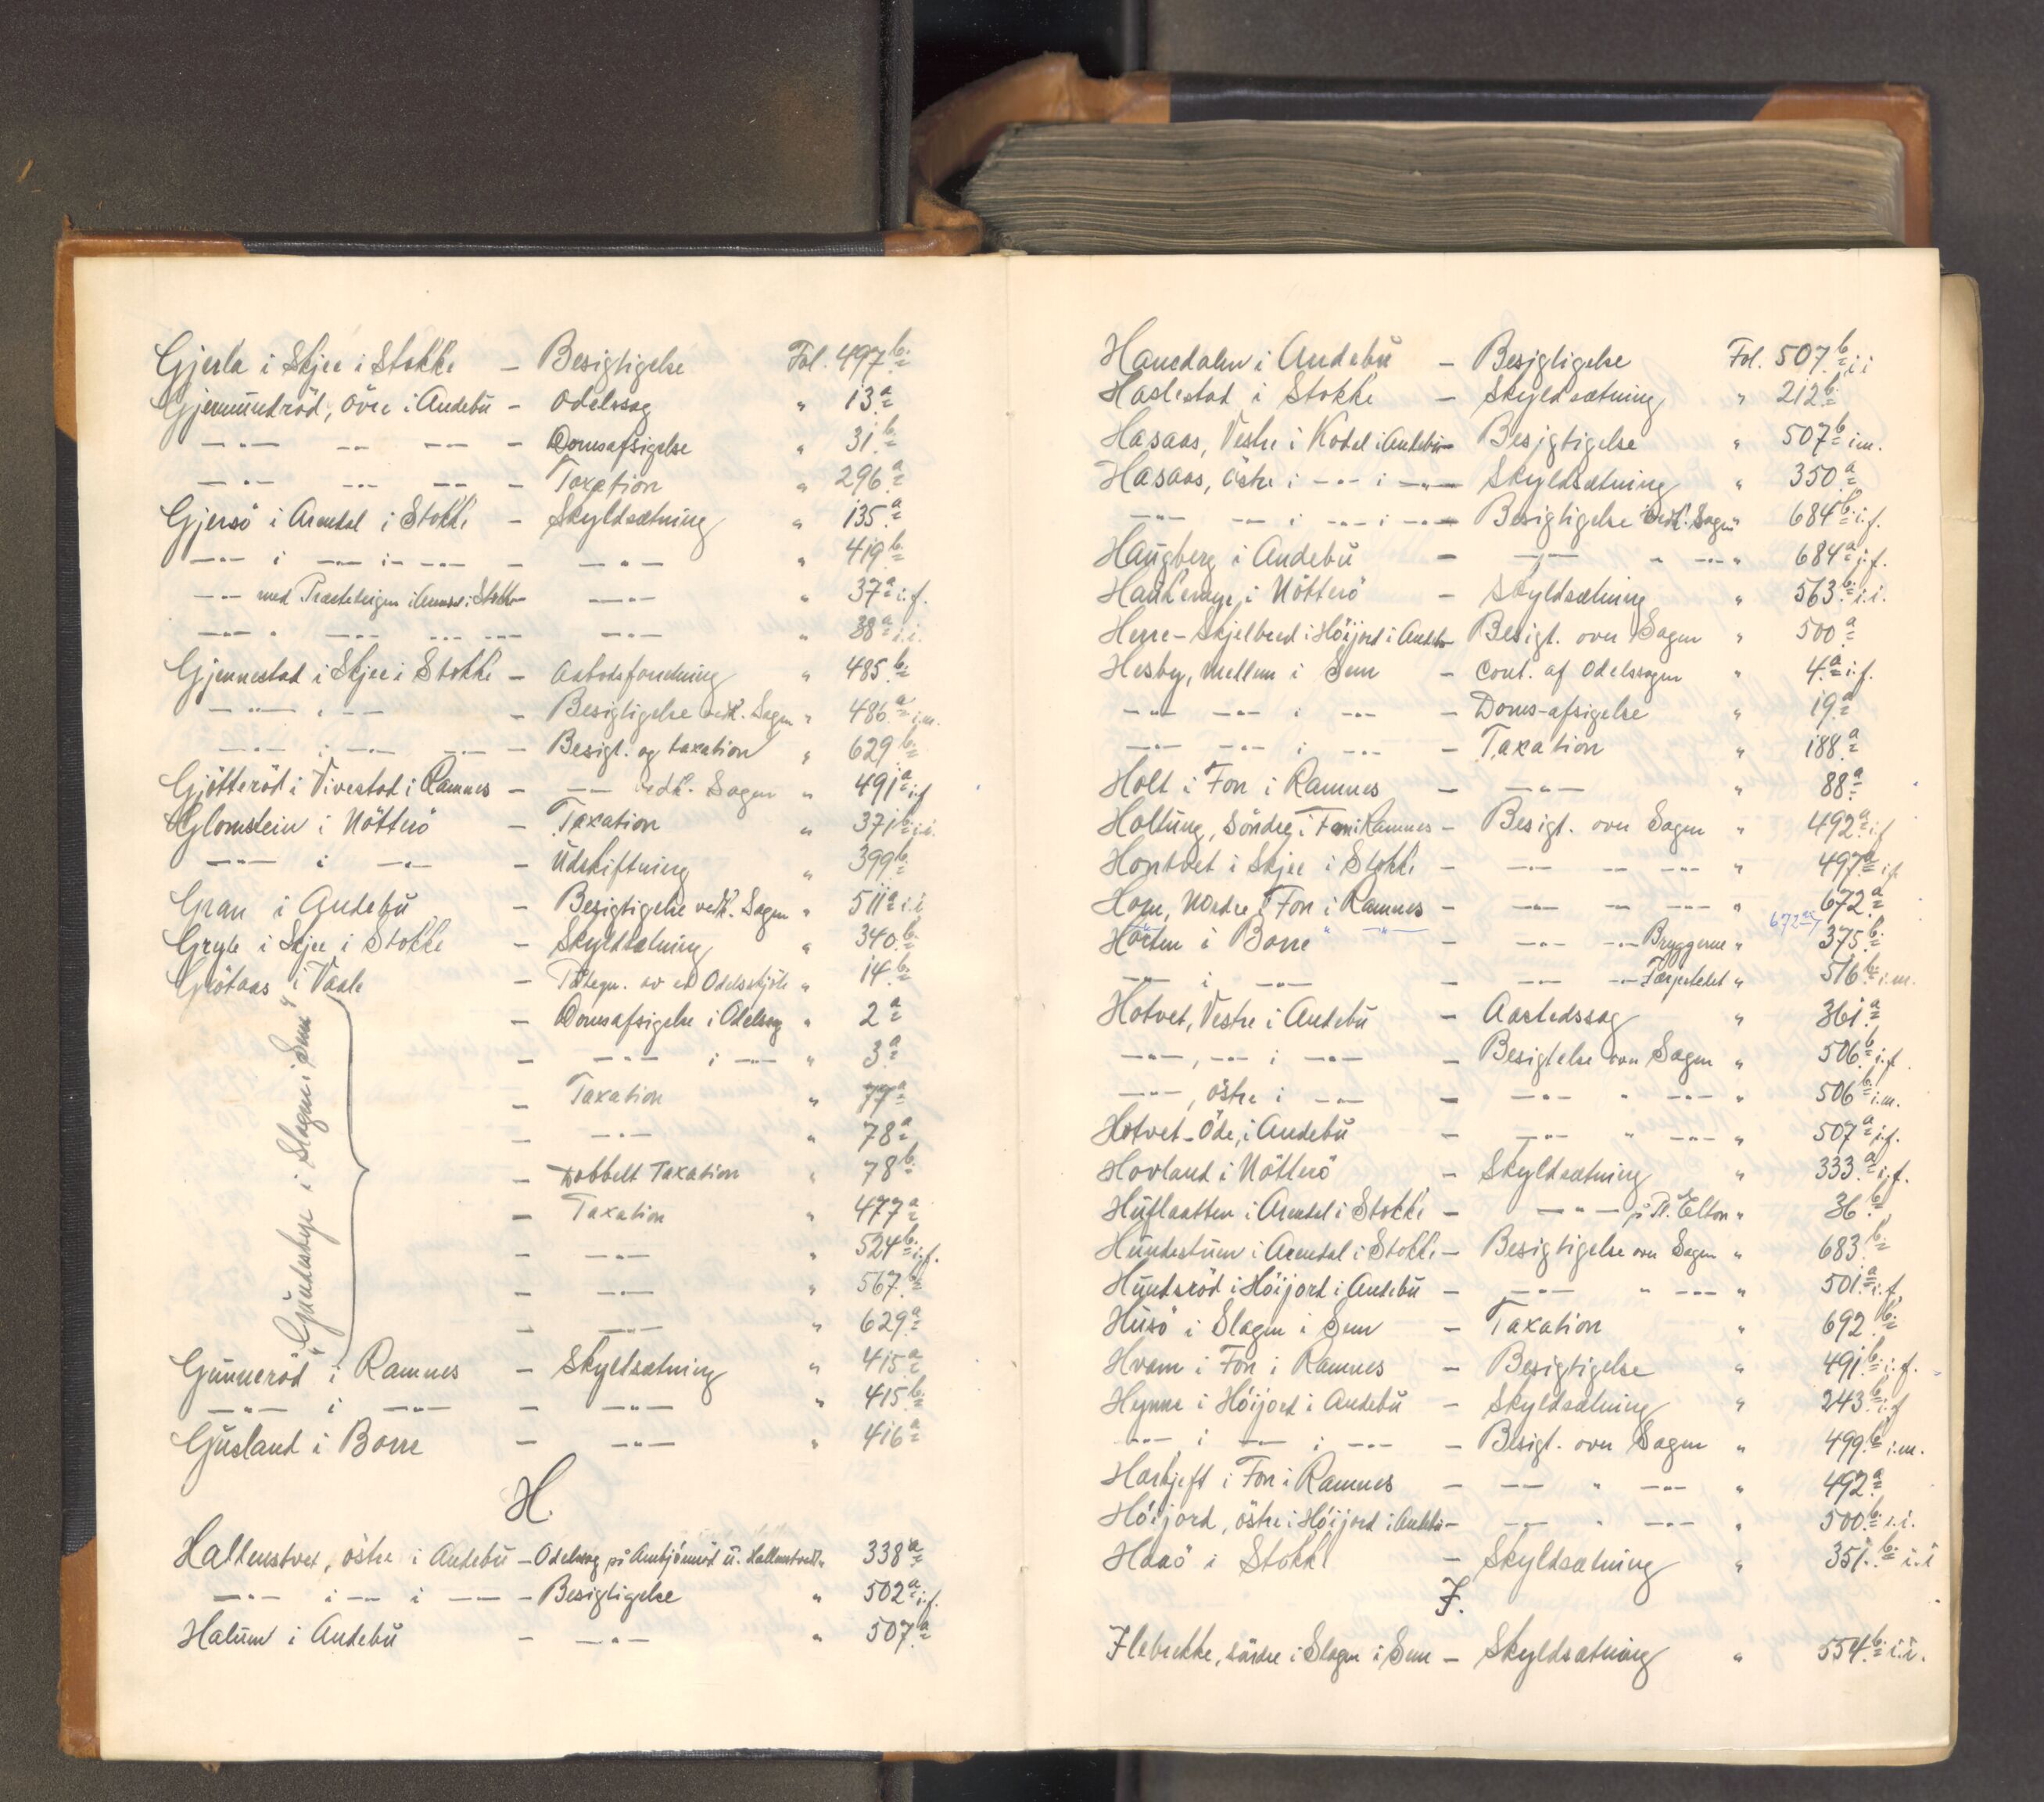 Gjerla i Skjee i Stokke – Besigtigelse Fol. 497 b.
Gjermundröd, övre i Andebu – Odelssag " 13 a
–"– –"– –"– – Domsafsigelse " 31 b.
–"– –"– –"– – Taxation " 296 a
Gjersö i Arendal i Stokke – Skyldsætning " 135 a
–"– i –"– i –"– – –"– " 419 b.
–"– med i Arendal i Stokke –"– " 37 a i.f.
–"– " –"– –"– –"– –"– " 38 a i.i.
Gjennestad i Skjee i Stokke – Aabodsforretning " 485 b.
–"– i –"– – Besigtigelse vedk. Sagen " 486 a i.m.
–"– i –"– –"– – Besigt. og taxation " 629 b.
Gjötteröd i Vivestad i Ramnes – –"– vedk. Sagen " 491 a i.f
Glomstein i Nötterö – Taxation " 371 b. i.i.
–"– i –"– – Udskiftning " 399 b.
Gran i Andebu – Besigtigelse vedk. Sagen " 511 a i.i
Gryte i Skjee i Stokke – Skyldsætning " 340 b.
Grötaas i Vaale – Påtegn. av et Odelsskjöte " 14 b.
– Domsafsigelse i Odelssag " 2 a
– –"– i –"– " 3 a
– Taxation " 77 a
– –"– " 78 a
– Dobbelt Taxation " 78 b.
– Taxation " 477 a
– –"– " 524 b. i.f.
– –"– " 567 a
– –"– " 629 a
i Slagen i Sem"
Gunneröd i Ramnes – Skyldsætning " 415 a
–"– i –"– – –"– " 415 b.
Gusland i Borre – –"– " 416 a
H.
Hallenstvet, östre i Andebu – Odelssag på Anbjörnröd u. Hallenstvedt " 338 a
–"– i –"– i –"– – Besigtigelse " 502 a i.f.
Halum i Andebu – –"– " 507 a
Hanedalen i Andebu – Besigtigelse Fol. 507 b. i.i
Haslestad i Stokke – Skyldsætning " 212 b.
Hasaas, Vestre i Kodal i Andebu – Besigtigelse " 507 b i.m.
Hasaas, östre i –"– i –"– Skyldsætning " 350 a
–"– –"– i –"– i –"– Besigtigelse vedk. Sagen " 684 b. i.f.
Haugberg i Andebu – –"– " –"– " 684 a i.f.
Haukemyr, i Nötterö – Skyldsætning " 563 b. i.i.
Herre-Skjelbred i Höijord i Andebu – Besigt. over Sagen " 500 a
Hesby, mellem i Sem – Cont. af Odelssagen " 4 a i.f.
–"– –"– i –"– – Doms-afsigelse " 19 a
–"– –"– i –"– – Taxation " 188 a
Holt i Fon i Ramnes – –"– " 88 a
Holtung, Söndre, i Fon i Ramnes – Besigt. over Sagen " 492 a i.f
Hontvet i Skjee i Stokke – –"– –"– –"– " 497 a i.f
Horn, Nordre i Fon i Ramnes – –"– " –"– " 672 a
" –"– 672 a
Horten i Borre – –"– –"– Bryggerne " 375 b.
–"– i –"– – –"– –"– Færgestedet " 516 b. i.m.
Hotvet, Vestre i Andebu – Aastedssag " 361 a
–"–, –"– i –"– – Besigtelse over Sagen " 506 b i.f.
–"–, östre i –"– – –"– " –"– " 506 b. i.m.
Hotvet-Öde, i Andebu – –"– " –"– " 507 a i.f.
Hovland i Nötterö – Skyldsætning " 333 a i.f.
Huflaatten i Arendal i Stokke – –"– på Pl. Elton " 36 b.
Hundestuen i Arendal i Stokke – Besigtigelse over Sagen " 683 b.
Hundsröd i Höijord i Andebu – –"– " –"– " 501 a i.f.
Husö i Slagen i Sem – Taxation " 692 b.
Hvam i Fon i Ramnes – Besigtigelse " 491 b. i.f.
Hynne i Höijord i Andebu – Skyldsætning " 243 b. i.f
–"– i –"– i –"– – Besigt. over Sagen " 499 b i.m.
i Fon i Ramnes – –"– " –"– " 492 a
Höijord, östre i Höijord i Andebu – –"– " –"– " 500 b. i.i.
Haaö i Stokke – Skyldsætning " 351 b. i.i
I.
Ilebrekke, söndre i Slagen i Sem – Skyldsætning " 554 b. i.i.